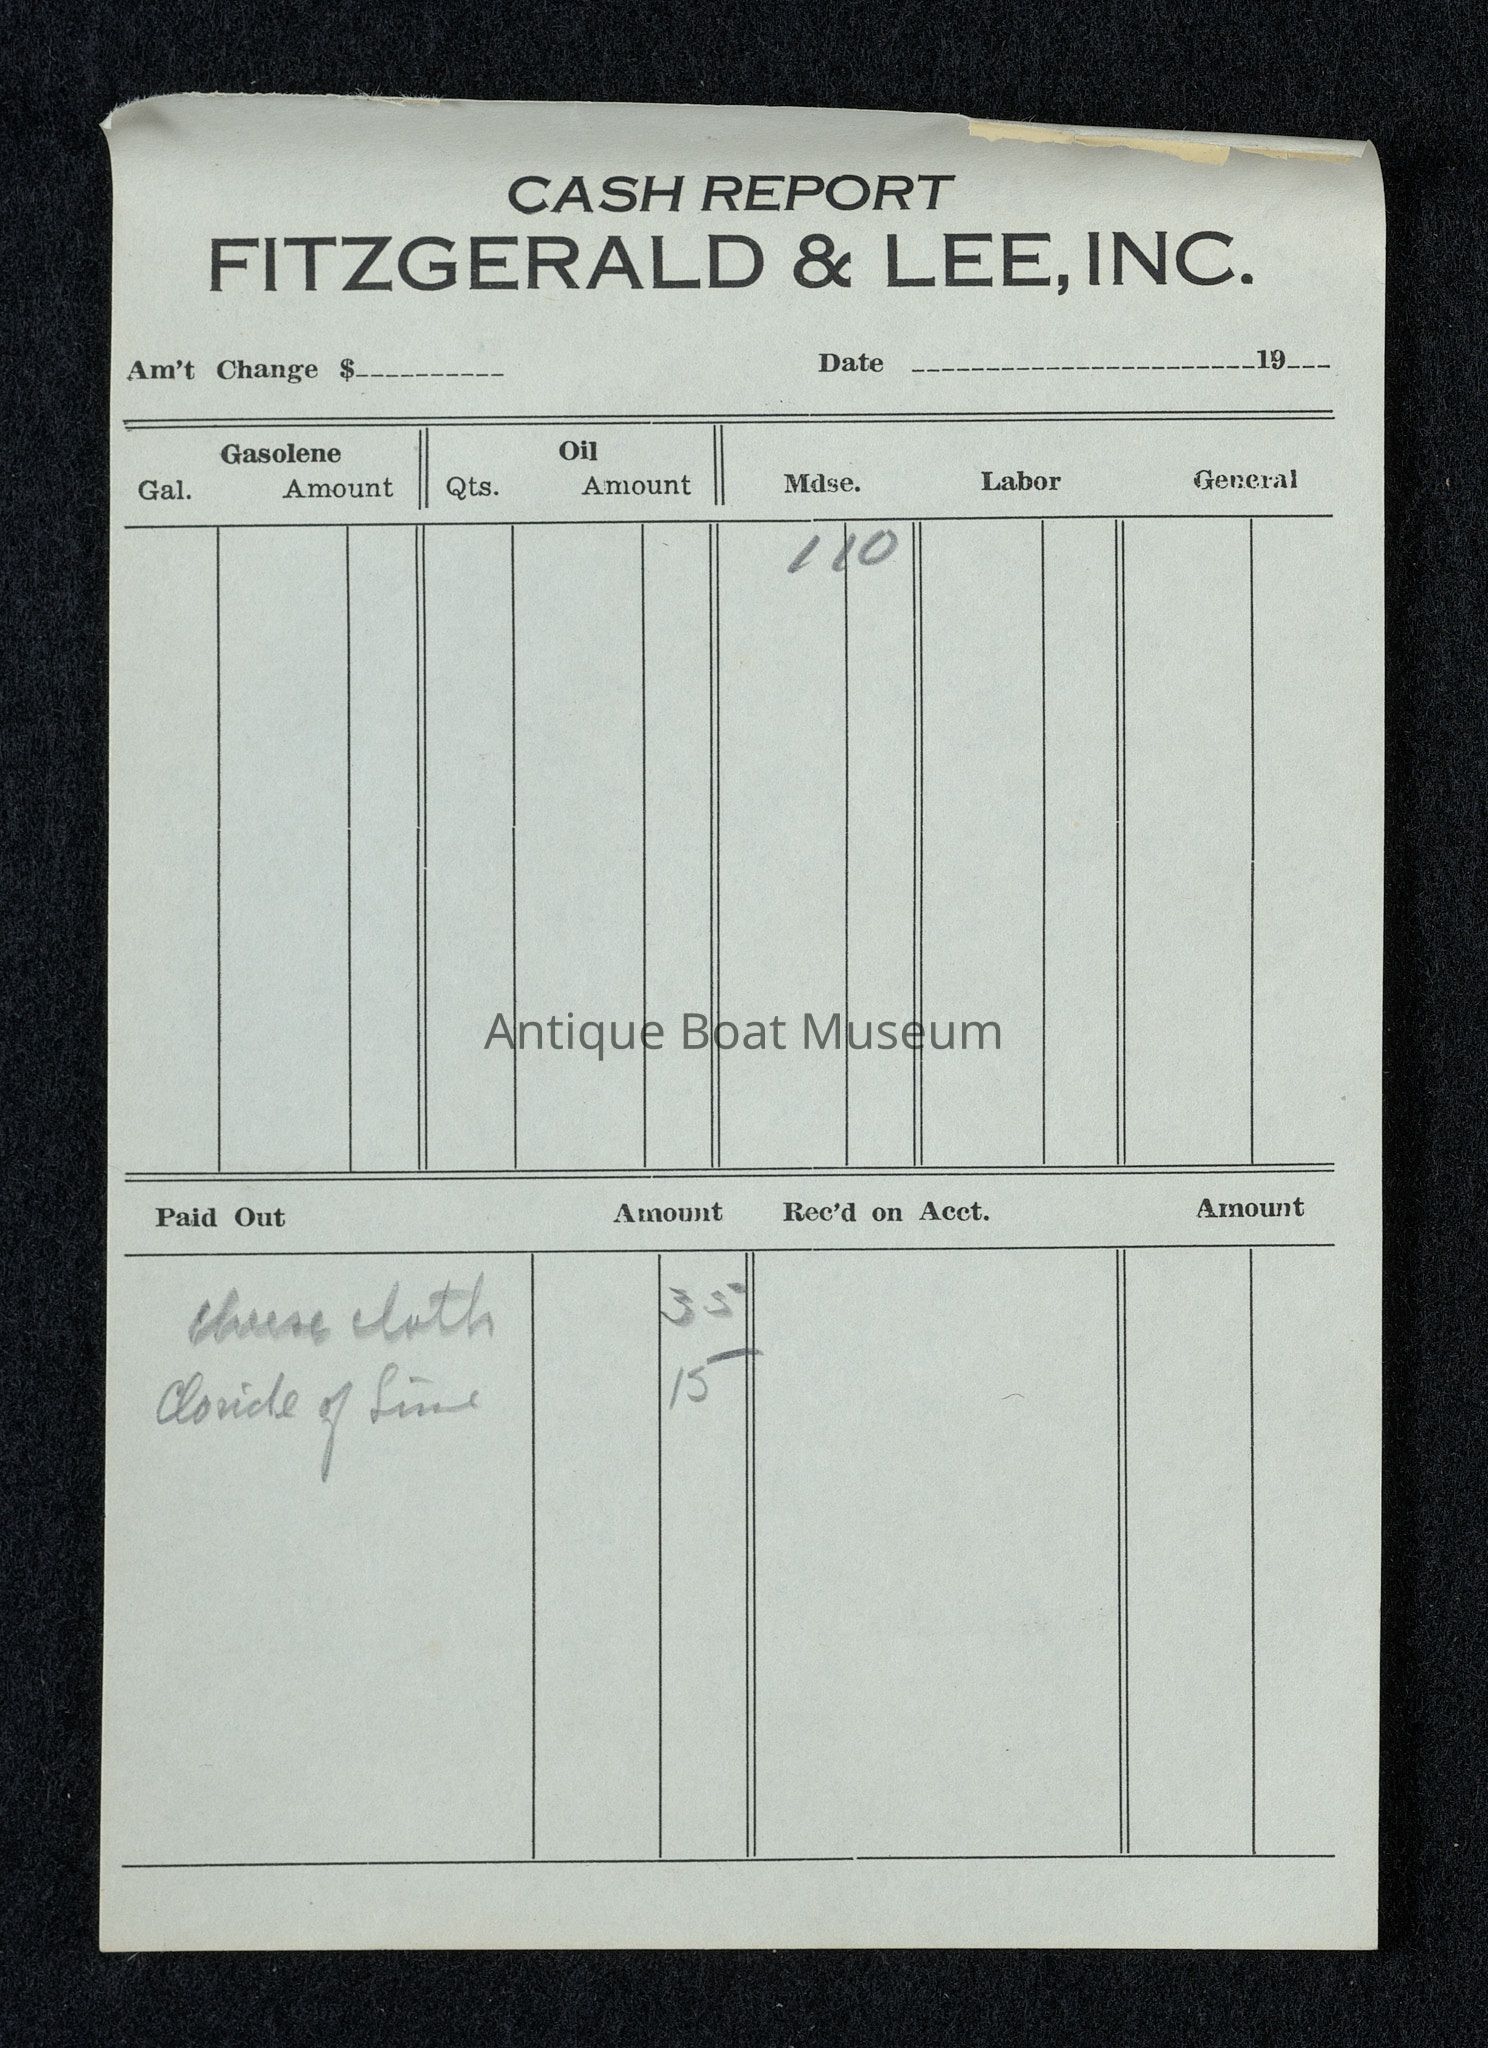 CASH REPORT
FITZGERALD & LEE, INC.
Am't Change $__________ Date _______________________19___
Gasolene Oil
Gal. Amount Qts. Amount Mdse. Labor General
1 10
Antique Boat Museum
Paid Out Amount Rec'd on Acct. Amount
cheese cloth 35
Cloride of Lime 15